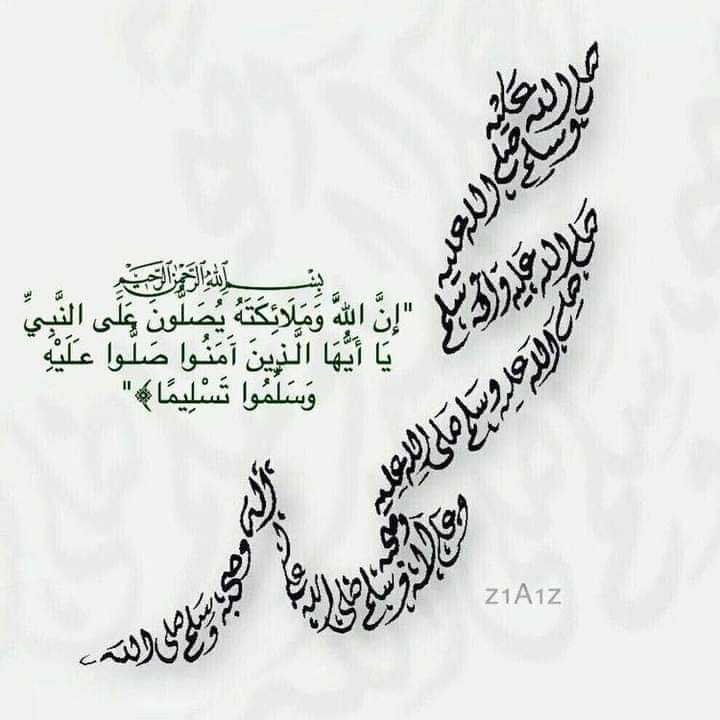 بِسْمِ اللَّهِ الرَّحْمَٰنِ الرَّحِيمِ
"إِنَّ اللهَ وَمَلَائِكَتَهُ يُصَلُّونَ عَلَى النَّبِيِّ
يَا أَيُّهَا الَّذِينَ آمَنُوا صَلُّوا عَلَيْهِ
وَسَلِّمُوا تَسْلِيمًا﴾"
صلى الله عليه
وسلم صلى الله عليه
صلى الله عليه وآله وسلم
صلى الله عليه وسلم صلى الله عليه
وعلى آله وصحبه وسلم صلى الله
عليه
آله وصحبه وسلم صلى الله
Z1A1Z